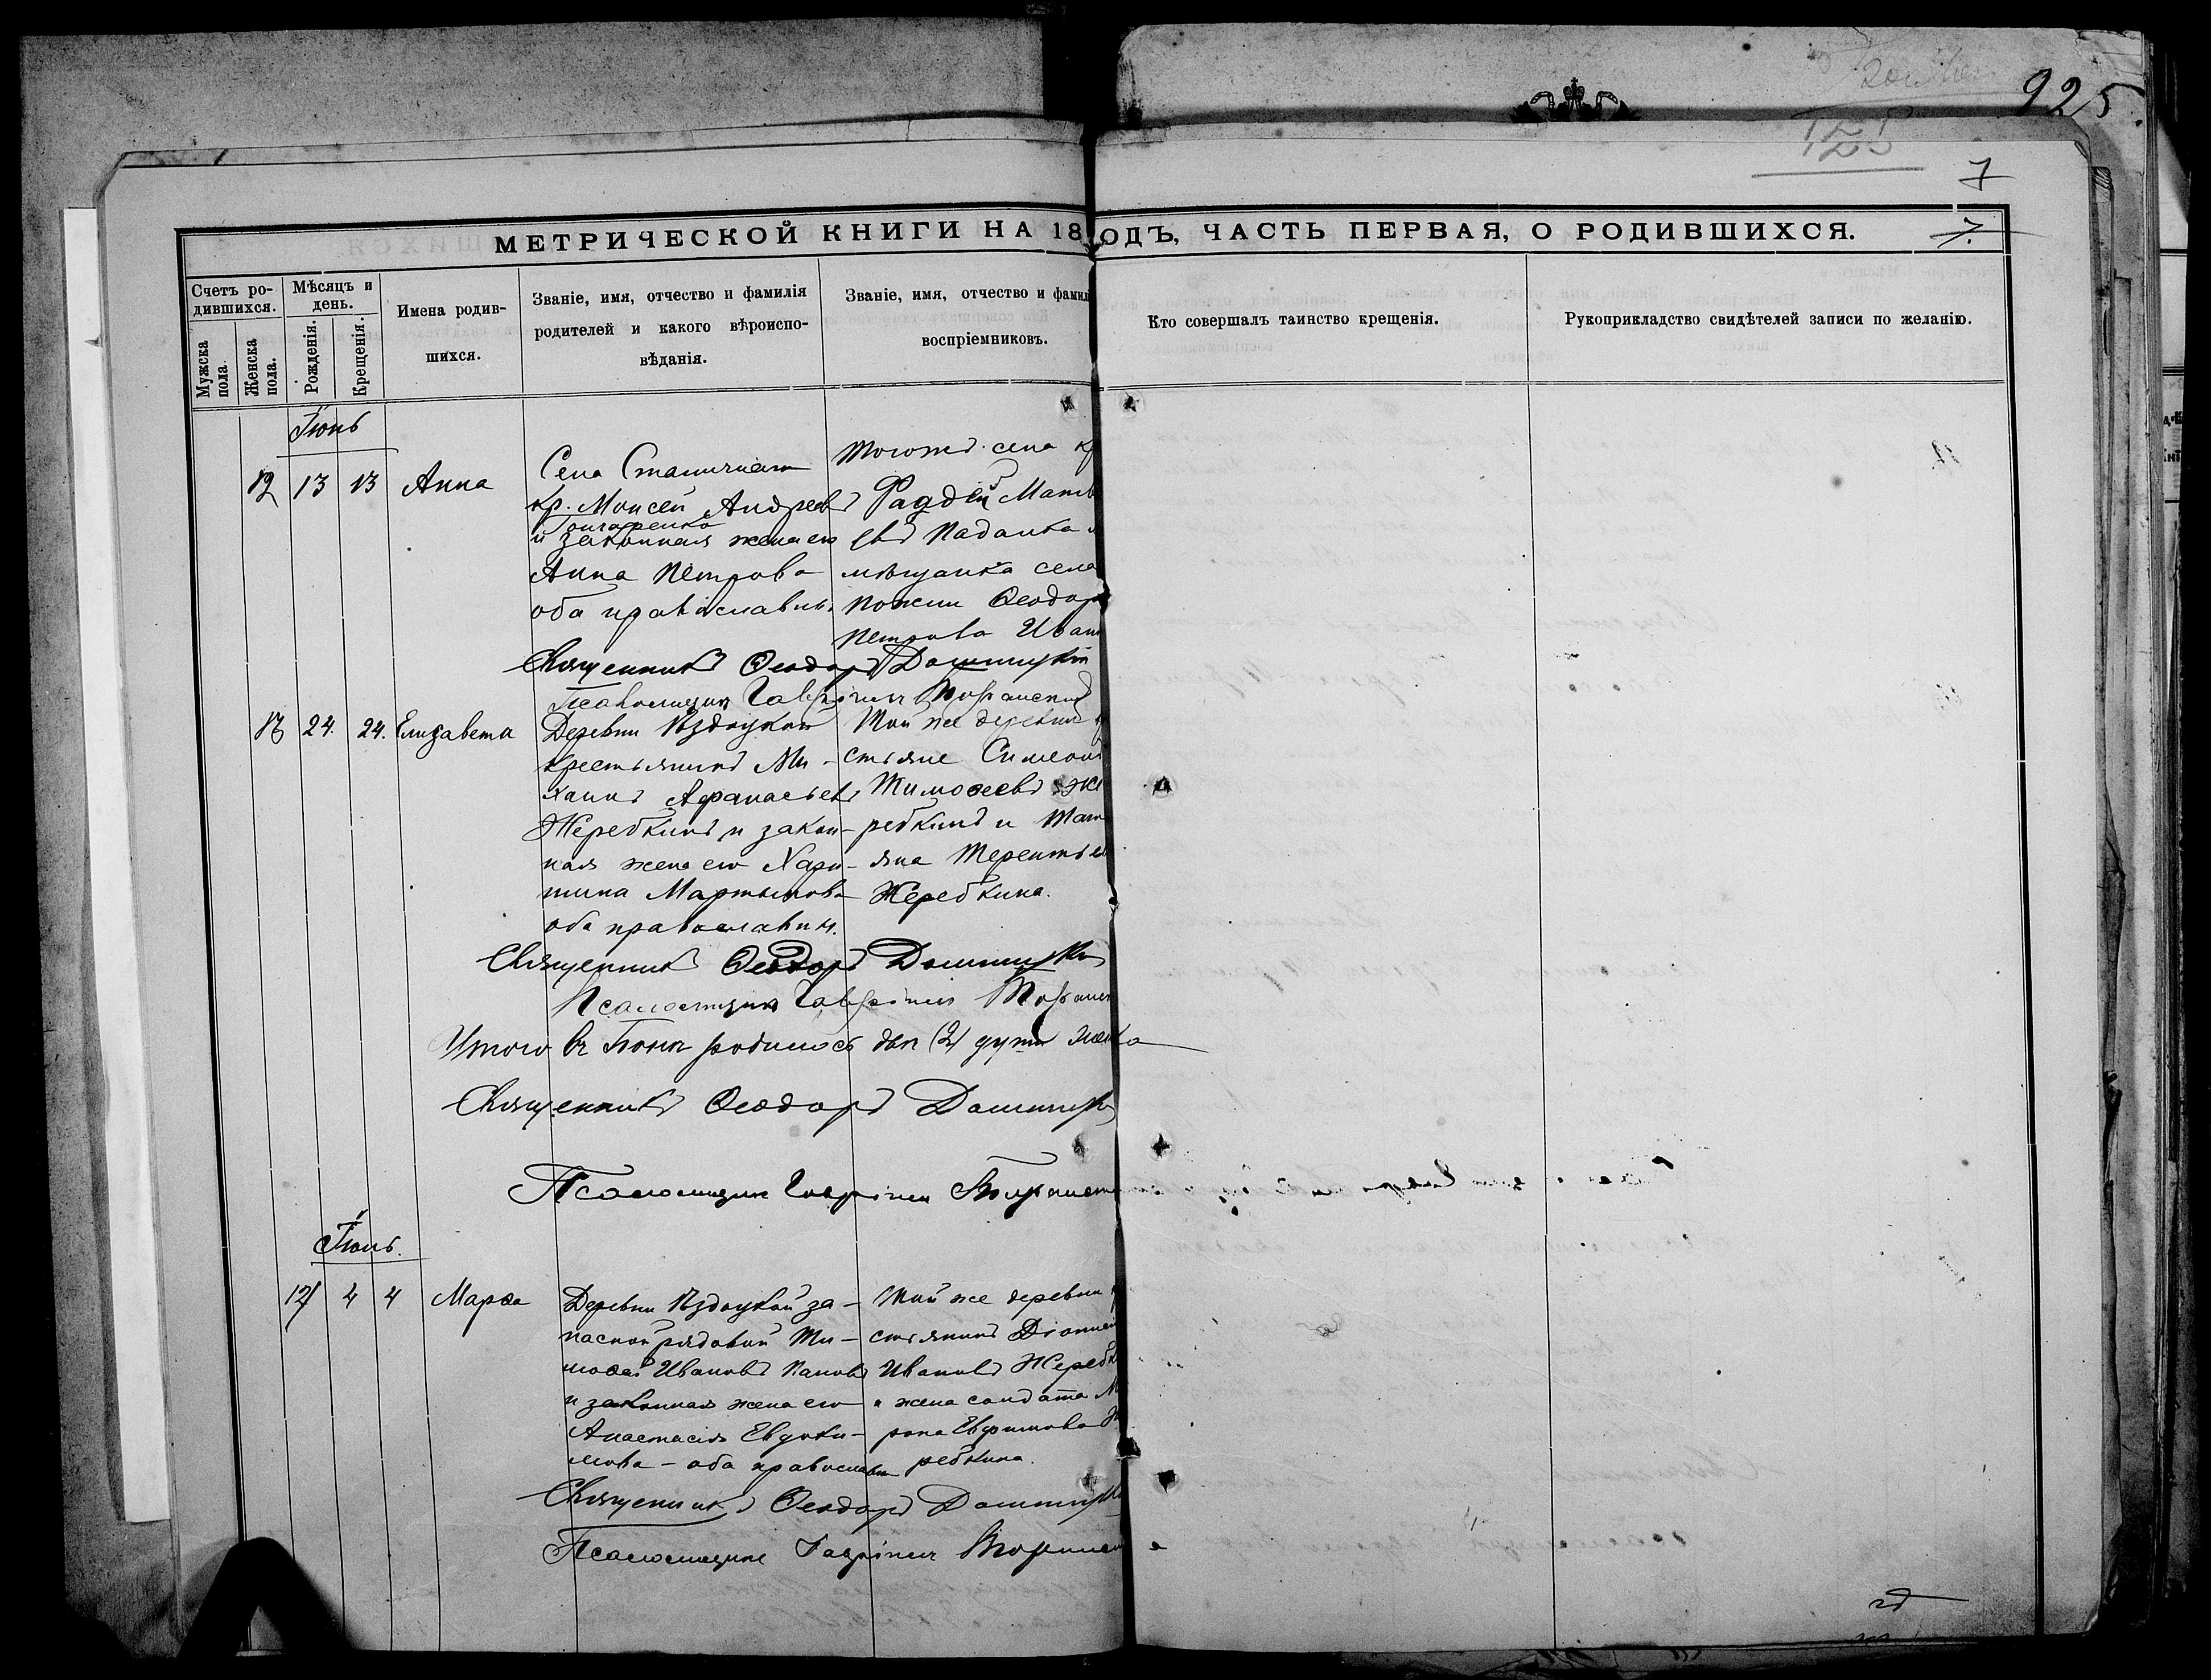 925
125
7
7.
МЕТРИЧЕСКОЙ КНИГИ НА 18
ОДЪ, ЧАСТЬ ПЕРВАЯ, О РОДИВШИХСЯ.
Счетъ ро-
дившихся.
Мужска
пола.
Женска
пола.
Мѣсяцъ и
день.
Рожденія.
Крещенія.
Имена родив-
шихся.
Званіе, имя, отчество и фамилія
родителей и какого вѣроиспо-
вѣданія.
Званіе, имя, отчество и фамил
воспріемниковъ.
Кто совершалъ таинство крещенія.
Рукоприкладство свидѣтелей записи по желанію.
Іюнь
12 13 13 Анна
Села
кр. Моисей Андреевъ
Гончаренко
и законная жена его
Анна Петрова
оба православны
Тогожъ села кр
Фаддей Матв
евъ Падалка и
мѣщанка села
Ѳеодор
Петрова Иван
Священникъ Ѳеодоръ
Псаломщик Гавріилъ
13 24. 24. Елизавета
Деревни Яздоцкой
крестьянинъ Ми-
хаилъ Афанасьевъ
Жеребкинъ и закон-
ная жена его Хари-
тина Мартынова
оба православны.
Той же деревни кр
стьяне Симеонъ
Тимоѳеевъ Же
ребкинъ и Тат
яна Терентьев
Жеребкина.
Священникъ Ѳеодоръ
Псаломщик Гавріилъ
Итого въ Іюнѣ родилось двѣ (2) души женска
Священникъ Ѳеодоръ
Псаломщик Гавріилъ
Іюль.
14 4 4 Марѳа
Деревни Яздоцкой за-
пасной рядовой Ти-
моѳей Ивановъ Пановъ
и законная жена его
Анастасія Евдоки-
мова – оба православн
Той же деревни кр
стьянинъ Діонисій
Ивановъ Жеребк
и жена солдата М
рона Евфимова Же
ребкина.
Священникъ Ѳеодоръ
Псаломщик Гавріилъ